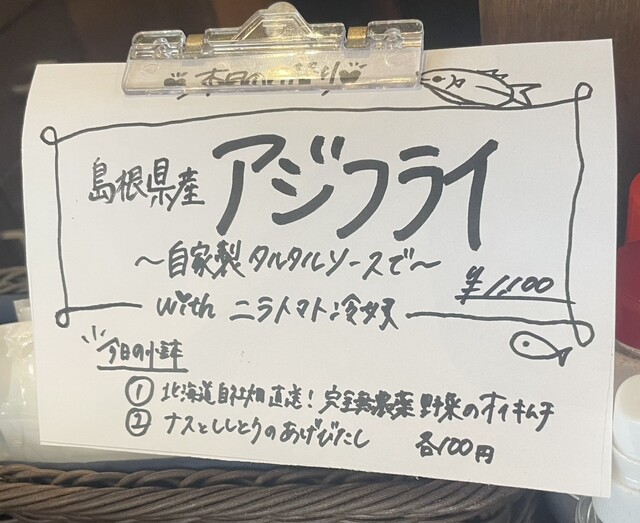 島根県産 アジフライ
～自家製タルタルソースで～
¥1,100
with ニラトマト冷奴
今日の小鉢
① 北海道自社畑直送！完全無農薬野菜のオイキムチ
② ナスとししとうのあげびたし 各100円